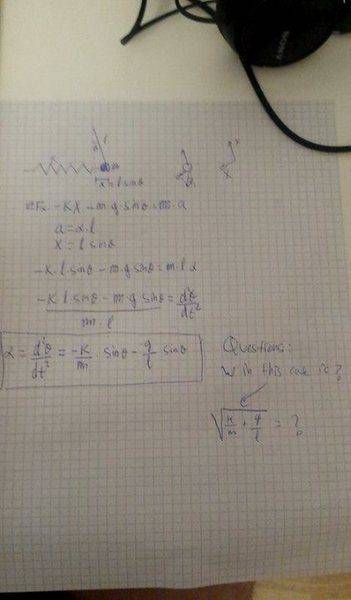 SONY
x = l sinθ
ΣFx -Kx - m.g sinθ = m.a
a = α.l
x = l sinθ
-K.l sinθ - m.g sinθ = m.l α
-K l sinθ - m g sinθ = d²θ
m.l dt²
α = d²θ = -K sinθ - g sinθ
dt² m l
Questions:
W in this case is?
√(K/m + g/l) = ?